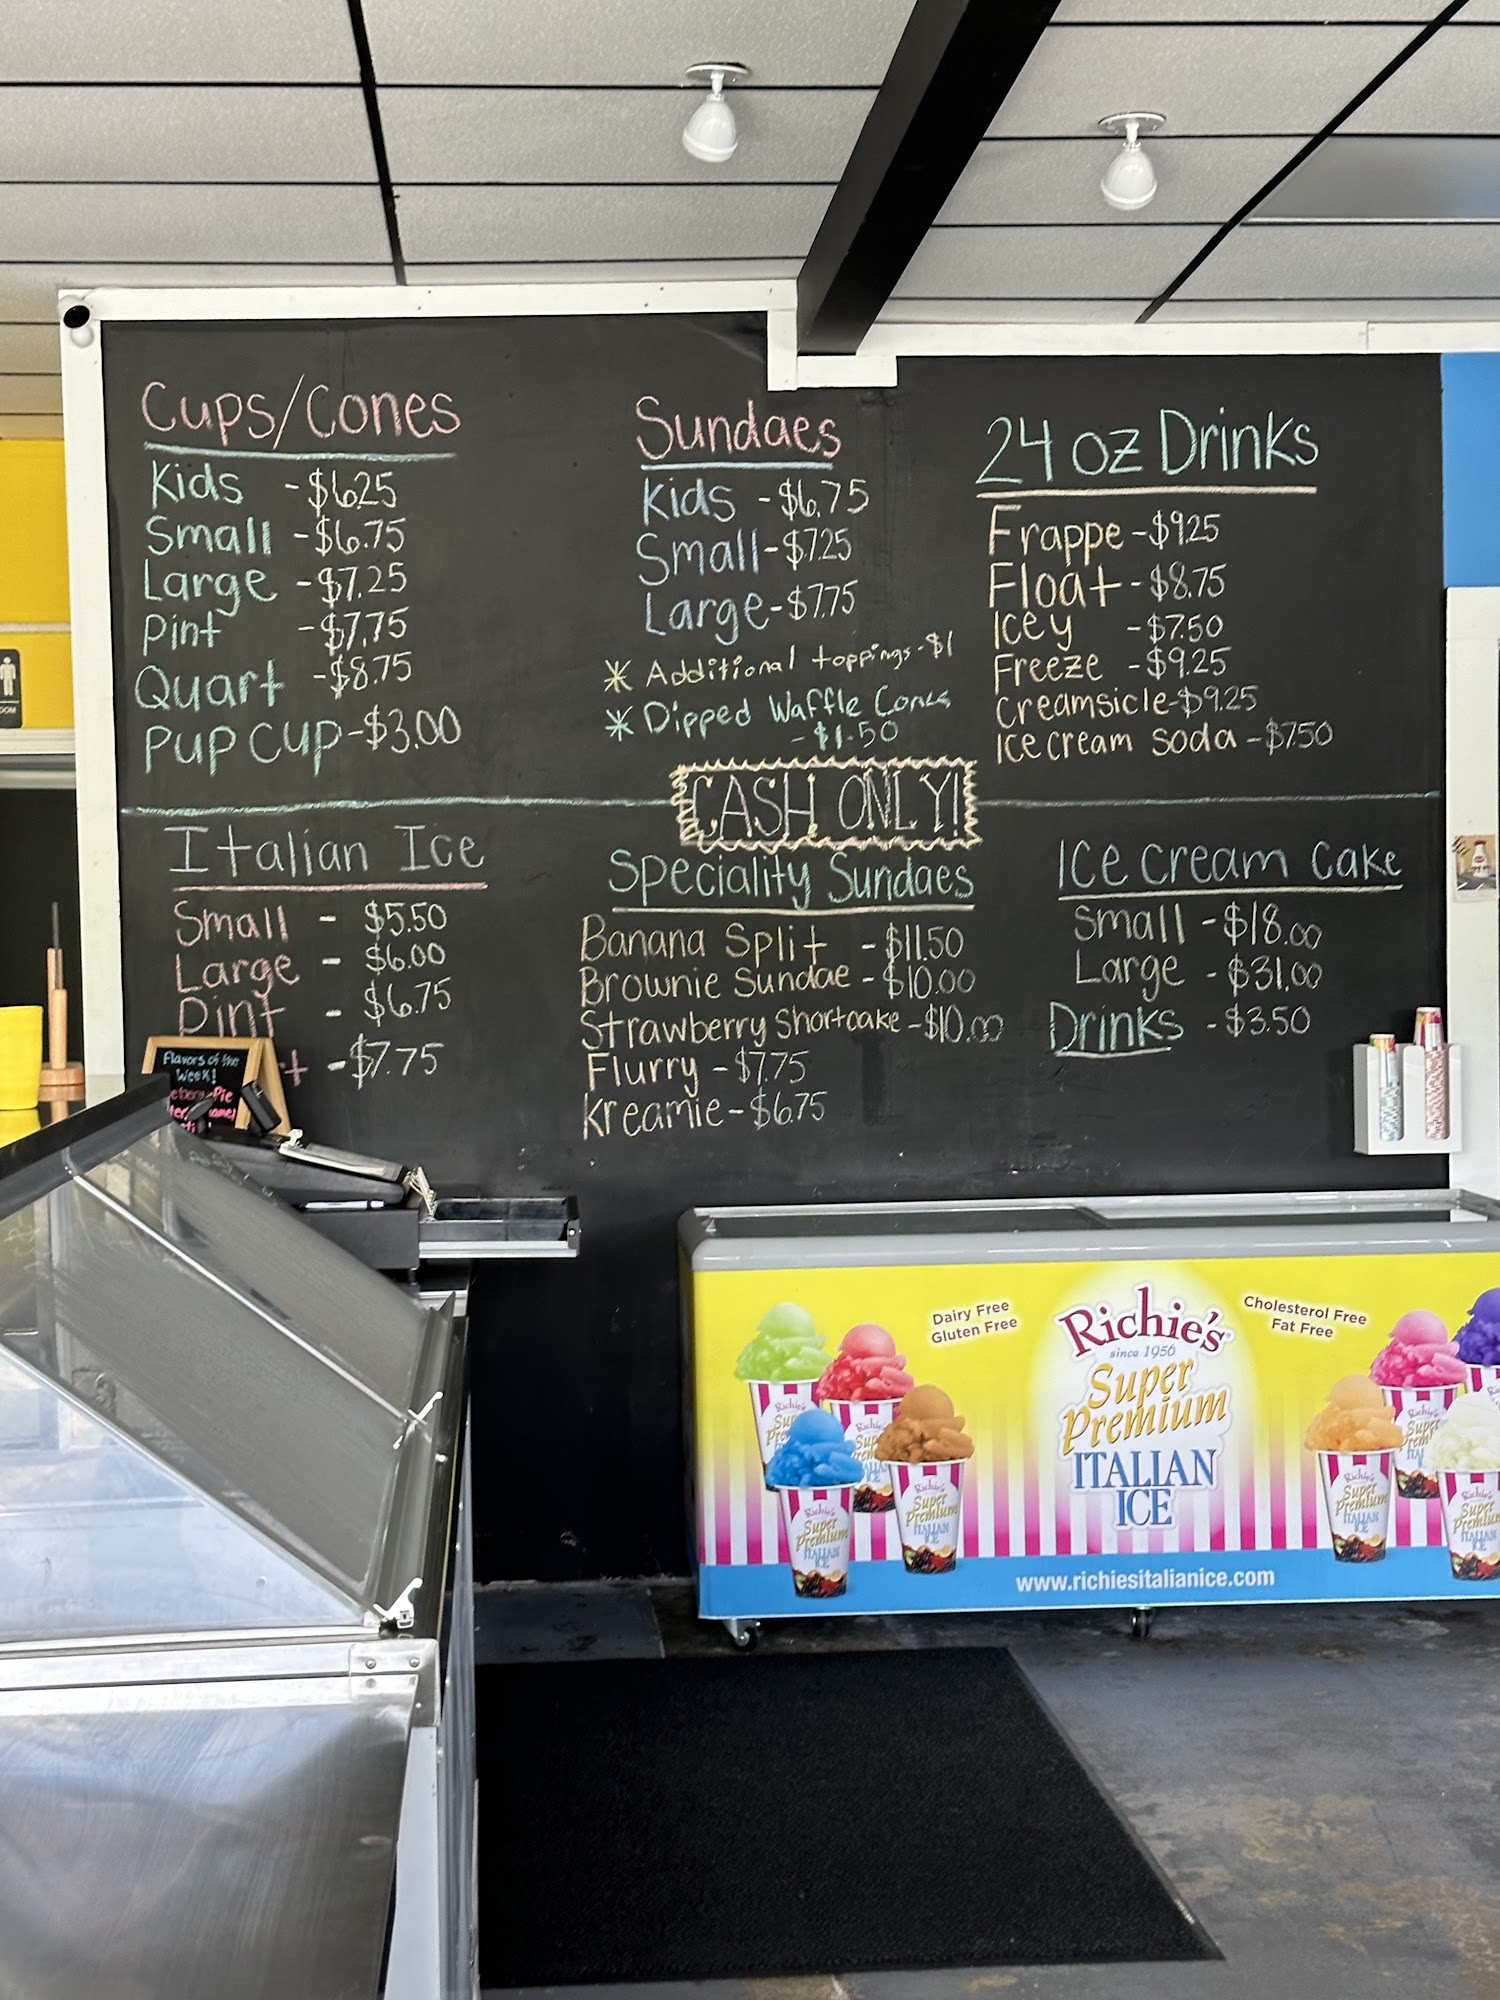 Cups/Cones
Kids - $6.25
Small - $6.75
Large - $7.25
Pint - $7.75
Quart - $8.75
Pup Cup - $3.00
Sundaes
Kids - $6.75
Small - $7.25
Large - $7.75
* Additional toppings - $1
* Dipped Waffle Cones
- $1.50
24 oz Drinks
Frappe - $9.25
Float - $8.75
Icey - $7.50
Freeze - $9.25
Creamsicle - $9.25
Ice cream soda - $7.50
CASH ONLY!
Italian Ice
Small - $5.50
Large - $6.00
Pint - $6.75
- $7.75
Speciality Sundaes
Banana Split - $11.50
Brownie Sundae - $10.00
Strawberry Shortcake - $10.00
Flurry - $7.75
Kreamie - $6.75
Ice Cream Cake
Small - $18.00
Large - $31.00
Drinks - $3.50
Flavors of the
Week!
Pie
Dairy Free
Gluten Free
Richie's
since 1956
Super
Premium
ITALIAN
ICE
Cholesterol Free
Fat Free
Richie's
Super
Premium
ITALIAN
ICE
Richie's
Super
Premium
ITALIAN
ICE
Richie's
Super
Premium
ITALIAN
ICE
www.richiesitalianice.com